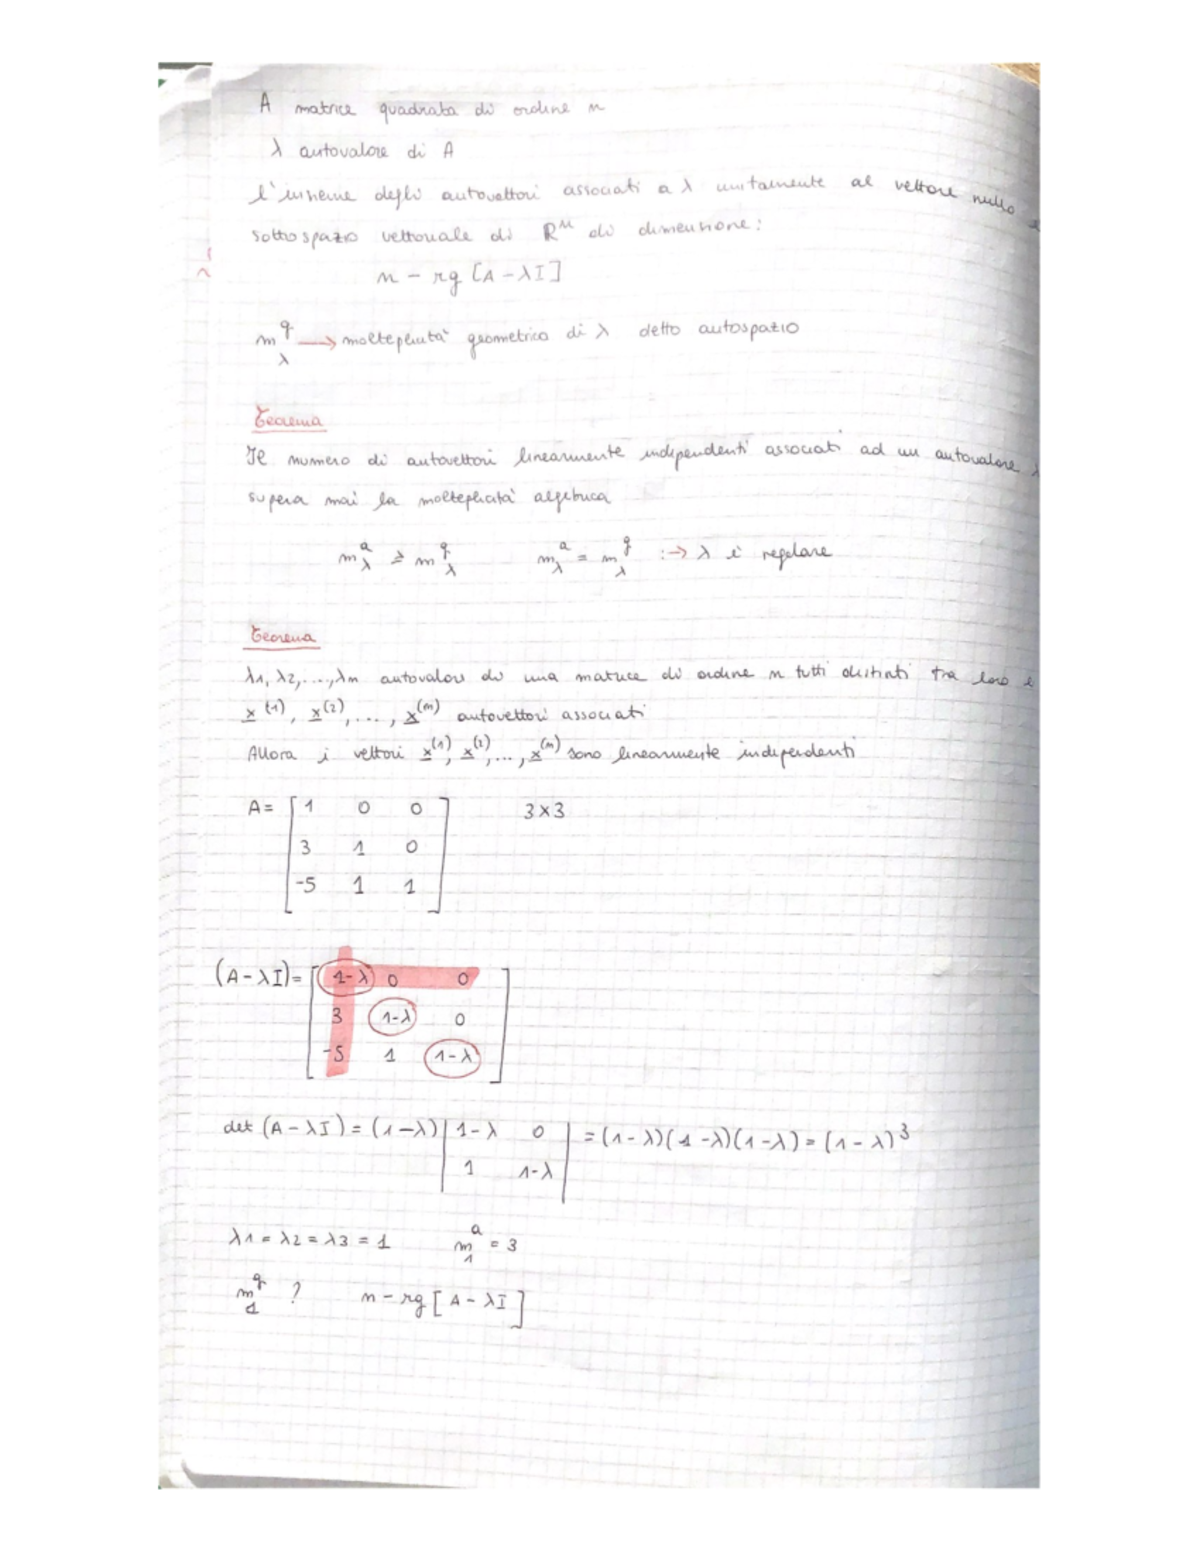 A matrice quadrata di ordine n
λ autovalore di A
l'insieme degli autovettori associati a λ unitamente al vettore nullo è
sottospazio vettoriale di Rⁿ di dimensione:
n - rg [A - λI]
m^g_λ → molteplicità geometrica di λ detto autospazio
Teorema
Il numero di autovettori linearmente indipendenti associati ad un autovalore λ
supera mai la molteplicità algebrica
m^a_λ ≥ m^g_λ m^a_λ = m^g_λ :→ λ è regolare
Teorema
λ1, λ2,...,λm autovalori di una matrice di ordine n tutti distinti tra loro e
x^(1), x^(2),..., x^(m) autovettori associati
Allora i vettori x^(1), x^(2),..., x^(m) sono linearmente indipendenti
A = [ 1 0 0 ] 3x3
3 1 0
-5 1 1
(A - λI) = [ 1-λ 0 0 ]
3 1-λ 0
-5 1 1-λ
det (A - λI) = (1-λ) | 1-λ 0 | = (1-λ)(1-λ)(1-λ) = (1-λ)³
1 1-λ
λ1 = λ2 = λ3 = 1 m^a_1 = 3
m^g_1 ? n - rg [A - λI]